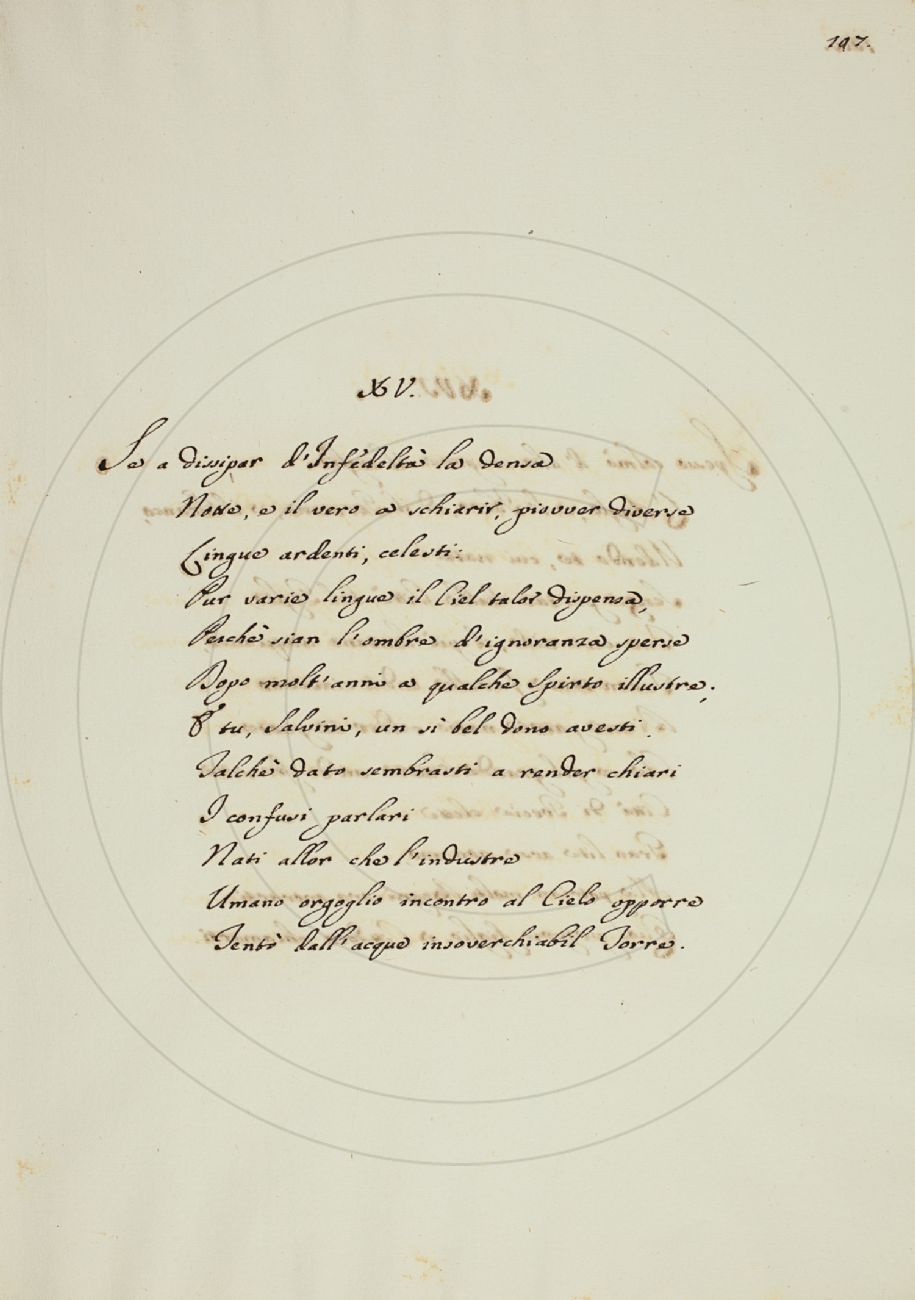 197.
XV.
Se a dissipar d'Infedeltà la densa
Notte, e il vero a schiarir, piovver diverse
Lingue ardenti, celesti:
Pur varie lingue il Ciel talor dispensa,
Perchè sian l'ombre d'ignoranza sperse
Dopo molt'anni a qualche Spirto illustre;
E tu, Salvini, un sì bel dono avesti.
Talchè dato sembrasti a render chiari
I confusi parlari
Nati allor che l'industre
Umano orgoglio incontro al Cielo opporre
Tentò dall'acque insoverchiabil Torre.